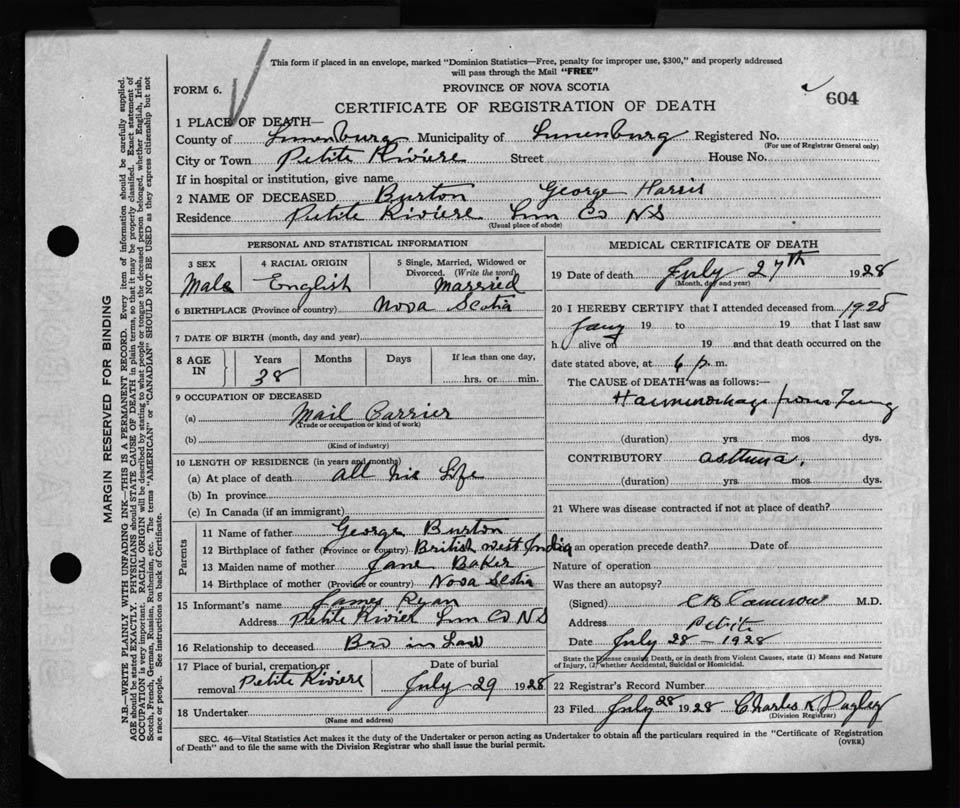 This form if placed in an envelope, marked "Dominion Statistics—Free, penalty for improper use, $300," and properly addressed
will pass through the Mail "FREE"
FORM 6.
PROVINCE OF NOVA SCOTIA
604
CERTIFICATE OF REGISTRATION OF DEATH
1 PLACE OF DEATH—
County of Lunenburg Municipality of Lunenburg Registered No.
(For use of Registrar General only)
City or Town Petite Riviere Street House No.
If in hospital or institution, give name
2 NAME OF DECEASED Burton George Harris
Residence Petite Riviere Lun Co NS
(Usual place of abode)
PERSONAL AND STATISTICAL INFORMATION
3 SEX 4 RACIAL ORIGIN 5 Single, Married, Widowed or
Divorced. (Write the word)
Male English Married
6 BIRTHPLACE (Province or country) Nova Scotia
7 DATE OF BIRTH (month, day and year)
8 AGE IN Years Months Days If less than one day,
38 hrs. or min.
9 OCCUPATION OF DECEASED
(a) Mail Carrier
(Trade or occupation or kind of work)
(b)
(Kind of industry)
10 LENGTH OF RESIDENCE (in years and months)
(a) At place of death all his Life
(b) In province
(c) In Canada (if an immigrant)
Parents
11 Name of father George Burton
12 Birthplace of father (Province or country) British West India
13 Maiden name of mother Jane Baker
14 Birthplace of mother (Province or country) Nova Scotia
15 Informant's name James Ryan
Address Petite Rivier Lun Co NS
16 Relationship to deceased Bro in Law
17 Place of burial, cremation or
removal Petite Riviere
Date of burial
July 29 1928
18 Undertaker
(Name and address)
MEDICAL CERTIFICATE OF DEATH
19 Date of death July 27th 1928
(Month, day and year)
20 I HEREBY CERTIFY that I attended deceased from 1928
19 to 19 that I last saw
h alive on 19 and that death occurred on the
date stated above, at 6 p. m.
The CAUSE of DEATH was as follows:—
Haemorrhage from Lung
(duration) yrs mos dys.
CONTRIBUTORY asthma.
(duration) yrs mos dys.
21 Where was disease contracted if not at place of death?
an operation precede death? Date of
Nature of operation
Was there an autopsy?
(Signed) CB Cameron M.D.
Address Petite
Date July 28 - 1928
State the Disease causing Death, or in death from Violent Causes, state (1) Means and Nature
of Injury, (2) whether Accidental, Suicidal or Homicidal.
22 Registrar's Record Number
23 Filed July 28 1928 Charles K
(Division Registrar)
SEC. 46—Vital Statistics Act makes it the duty of the Undertaker or person acting as Undertaker to obtain all the particulars required in the "Certificate of Registration
of Death" and to file the same with the Division Registrar who shall issue the burial permit.
(OVER)
MARGIN RESERVED FOR BINDING
N.B—WRITE PLAINLY WITH UNFADING INK—THIS IS A PERMANENT RECORD. Every item of information should be carefully supplied.
AGE should be stated EXACTLY. PHYSICIANS should STATE CAUSE OF DEATH in plain terms, so that it may be properly classified. Exact statement of
OCCUPATION is very important. RACIAL ORIGIN will be described by stating to what people or tongue the deceased person belonged, whether English, Irish,
Scotch, French, German, Russian, Ruthenian, etc. The terms "AMERICAN" or "CANADIAN" SHOULD NOT BE USED as they express citizenship but not
a race or people. See instructions on back of Certificate.